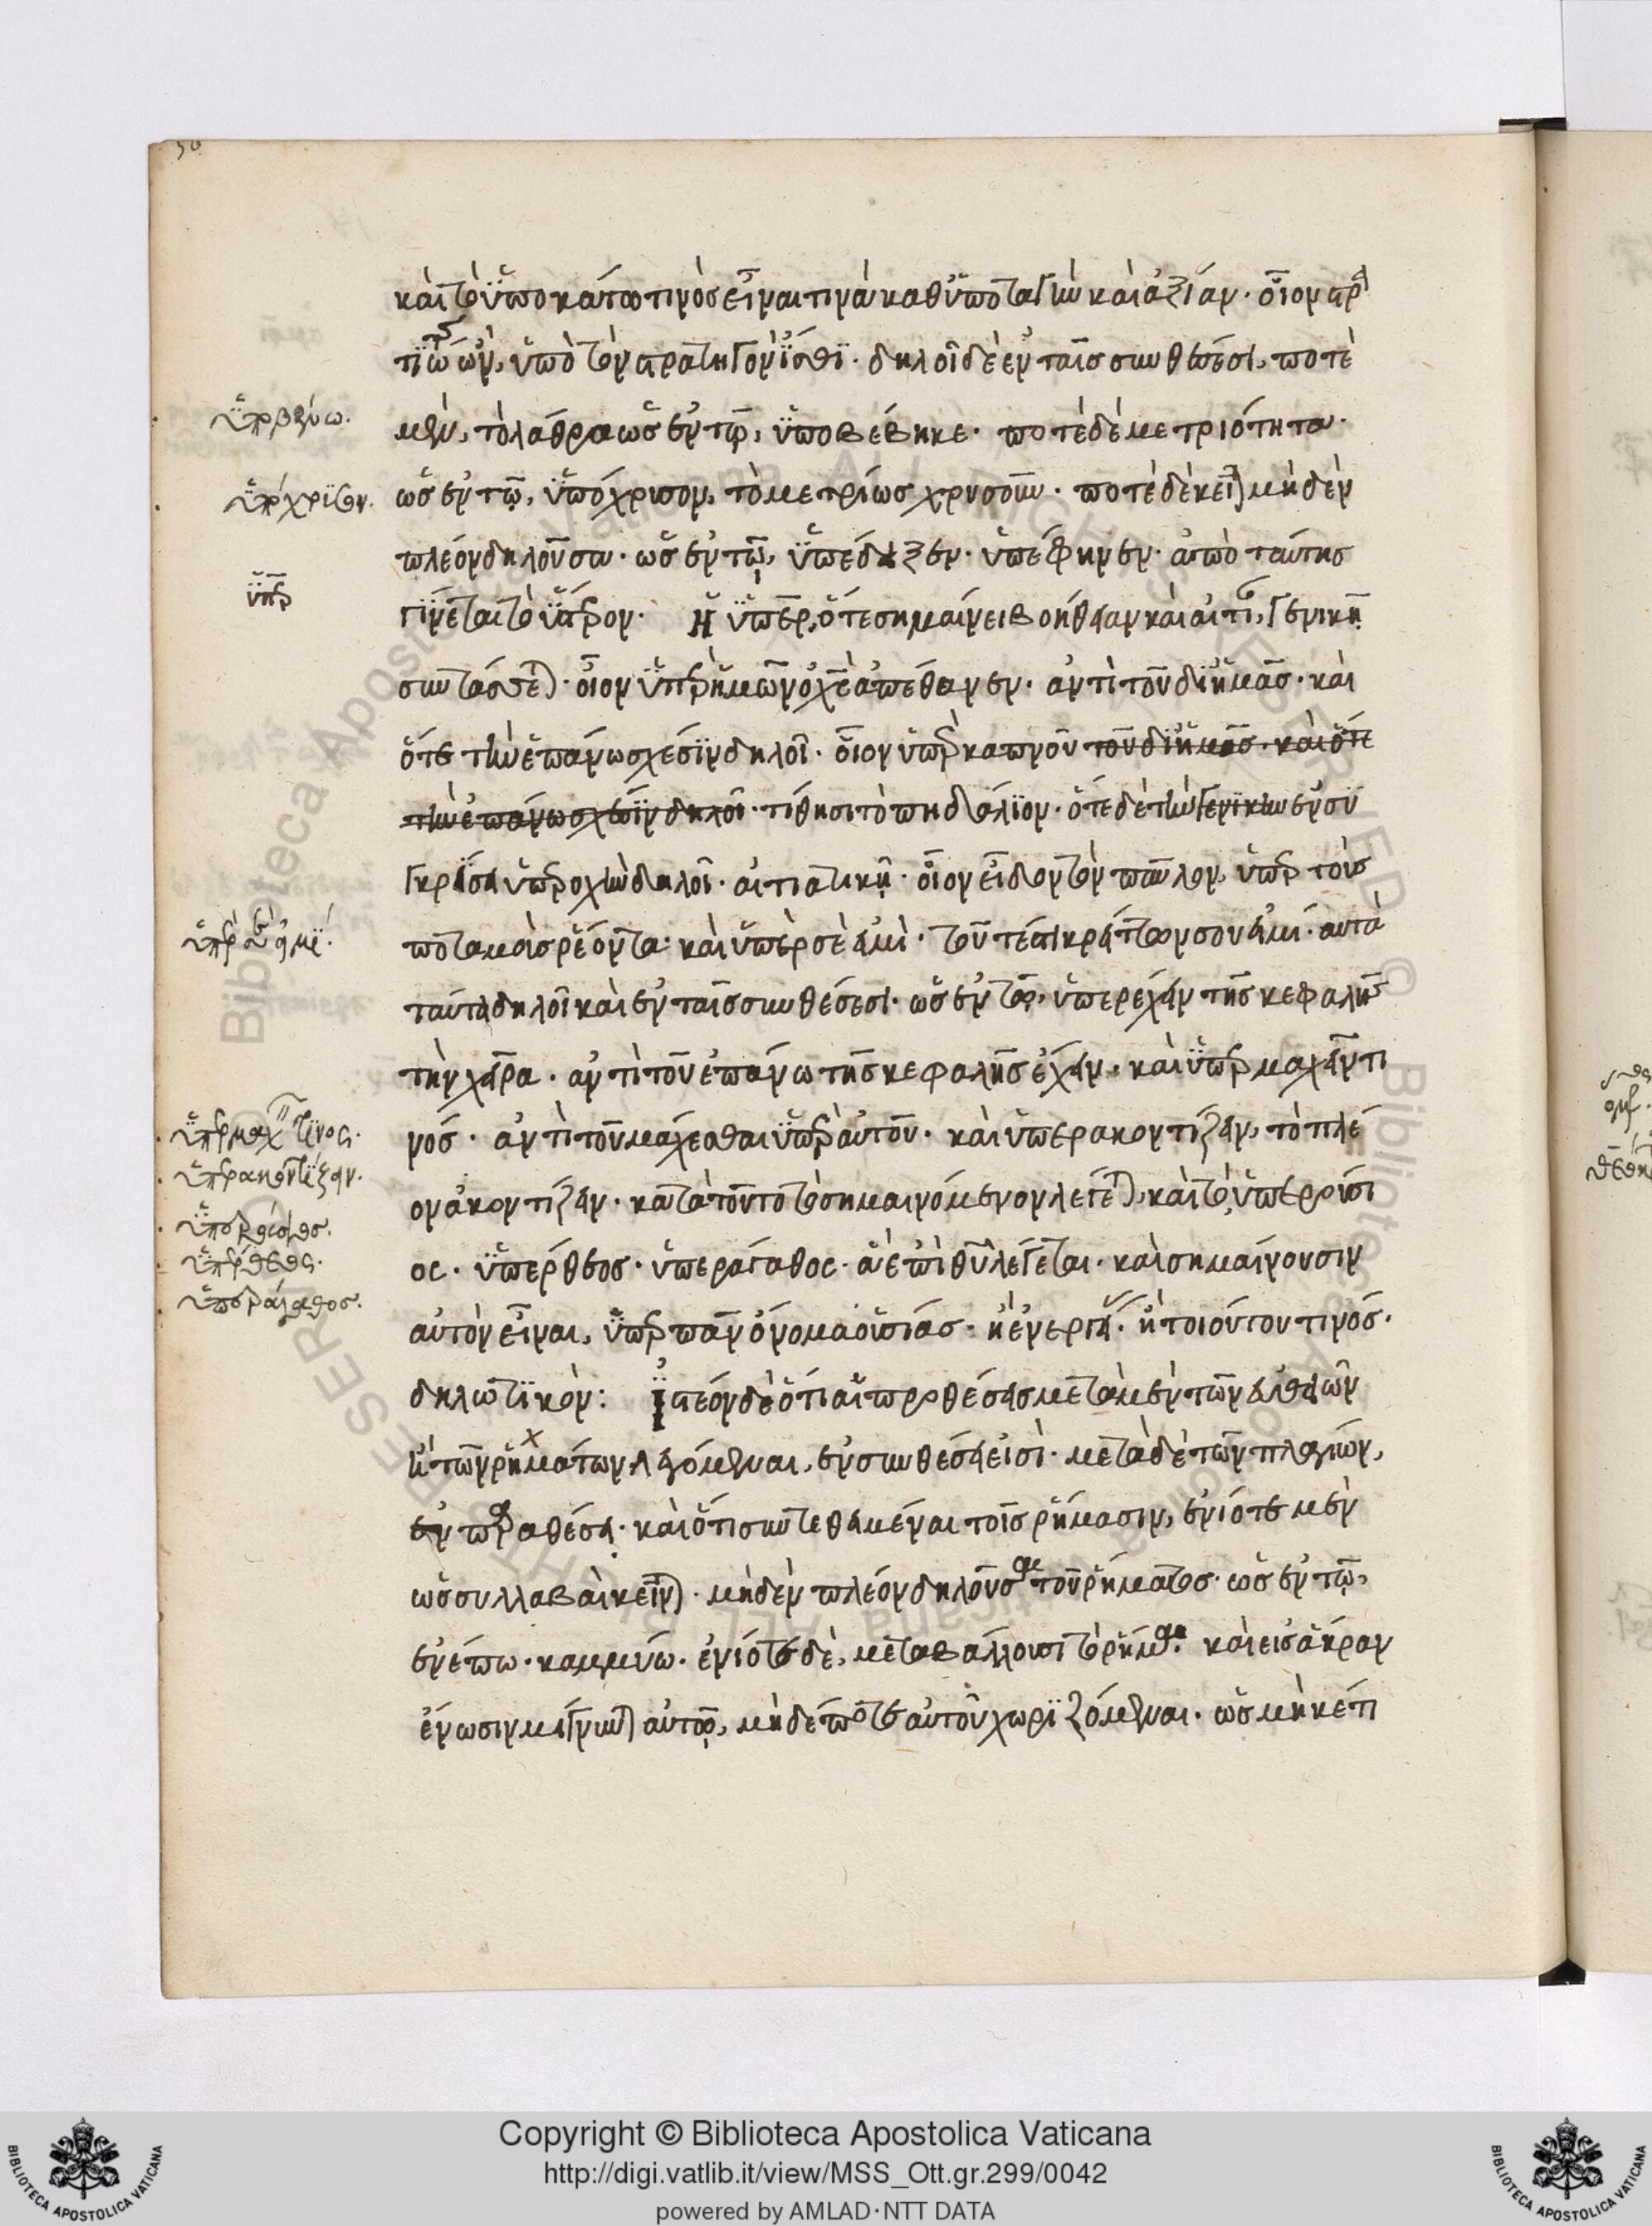 καὶ τὸ ὑποκάτω τινὸς εἶναι τινὰ καθ' ὑποταγὴν καὶ ἀξίαν· οἷον στρα
τιώτης ὢν, ὑπὸ τὸν στρατηγὸν ἴσθι· δηλοῖ δὲ ἐν ταῖς συνθέσεσι, ποτὲ
μὲν, τὸ λάθρα ὡς ἐν τῷ, ὑποβέβηκε· ποτὲ δὲ μετριότητα·
ὡς ἐν τῷ, ὑπόχρυσον, τὸ μετρίως χρυσοῦν· ποτὲ δὲ κεῖται μηδὲν
πλέον δηλοῦσα· ὡς ἐν τῷ, ὑπέδειξεν· ὑπέφηνεν· ἀπὸ ταύτης
γίνεται τὸ ὕπερον· Ἡ ὑπὲρ, ὅτε σημαίνει βοήθειαν καὶ αἰτίαν, γενικῇ
συντάσσεται· οἷον ὑπὲρ ἡμῶν ὁ χς ἀπέθανεν· ἀντὶ τοῦ δι' ἡμᾶς· καὶ
ὅτε τὴν ἐπάνω σχέσιν δηλοῖ· οἷον ὑπὲρ καπνοῦ τοῦ δι' ἡμᾶς· καὶ ὅτε
τὴν ἐπάνω σχέσιν δηλοῖ· τίθησι τὸ πηδάλιον· ὅτε δὲ τὴν γενικὴν ἐν συ
γκρίσει ὑπεροχὴν δηλοῖ· αἰτιατικῇ· οἷον εἶδον τὸν παῦλον, ὑπὲρ τοὺς
ποταμοὺς ῥέοντα· καὶ ὑπὲρ σὲ εἰμὶ· τουτέστι κρείττων σου εἰμί· αὐτὰ
ταῦτα δηλοῖ καὶ ἐν ταῖς συνθέσεσι· ὡς ἐν τῷ, ὑπερέχειν τῆς κεφαλῆς
τὴν χεῖρα· ἀντὶ τοῦ ἐπάνω τῆς κεφαλῆς ἔχειν· καὶ ὑπερμαχεῖν τι
νός· ἀντὶ τοῦ μάχεσθαι ὑπὲρ αὐτοῦ· καὶ ὑπερακοντίζειν, τὸ πλέ
ον ἀκοντίζειν· κατὰ τοῦτο τὸ σημαινόμενον λέγεται, καὶ τὸ, ὑπερούσι
ος· ὑπέρθεος· ὑπεράγαθος· ἃ ἐπὶ θυ λέγεται· καὶ σημαίνουσιν
αὐτὸν εἶναι, ὑπὲρ πᾶν ὄνομα οὐσίας· ἢ ἐνεργείας· ἢ τοιούτου τινός·
δηλωτικόν: Ἰστέον δὲ ὅτι αἱ προθέσεις μετὰ μὲν τῶν εὐθειῶν
ἢ τῶν ῥημάτων λεγόμεναι, ἐν συνθέσει εἰσί· μετὰ δὲ τῶν πλαγίων,
ἐν παραθέσει· καὶ ὅτι συντεθειμέναι τοῖς ῥήμασιν, ἐνίοτε μὲν
ὡς συλλαβαὶ κεῖνται· μηδὲν πλέον δηλοῦσαι τοῦ ῥήματος· ὡς ἐν τῷ,
ἐνέπω· καμμύω· ἐνίοτε δὲ, μεταβάλλουσι τὸ ῥῆμα· καὶ εἰς ἄκραν
ἕνωσιν μίγνυνται αὐτῷ, μηδέποτε αὐτοῦ χωριζόμεναι· ὡς μηκέτι
ὑπόχρυσον.
ὑπὲρ
ὑπὲρ σὲ εἰμί.
ὑπερμαχεῖν τινος.
ὑπερακοντίζειν.
ὑπερούσιος.
ὑπέρθεος.
ὑπεράγαθος.
Copyright © Biblioteca Apostolica Vaticana
http://digi.vatlib.it/view/MSS_Ott.gr.299/0042
powered by AMLAD·NTT DATA
BIBLIOTECA APOSTOLICA VATICANA
BIBLIOTECA APOSTOLICA VATICANA